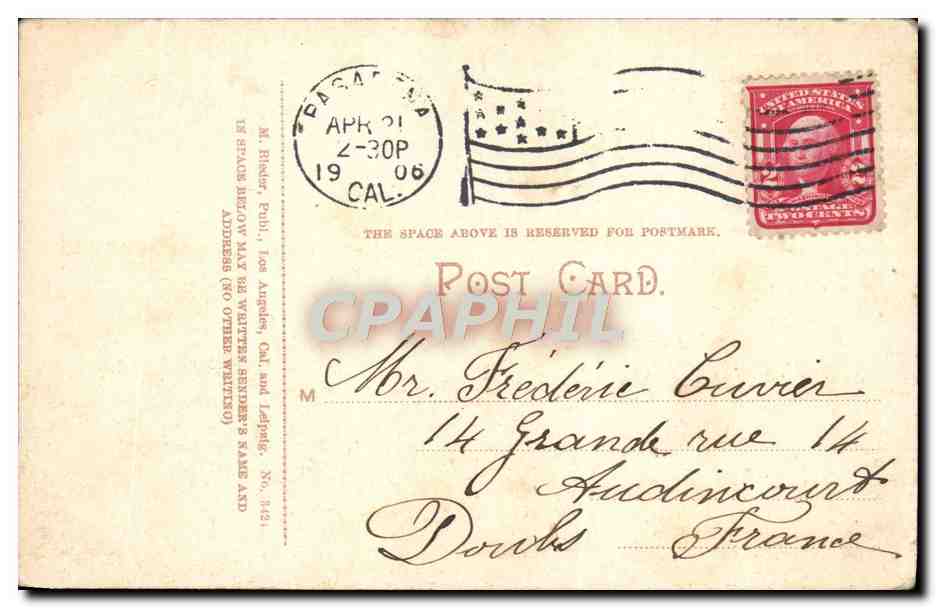 PASADENA
APR 21
2-30P
19 06
CAL.
UNITED STATES
OF AMERICA
2 2
POSTAGE
TWO CENTS
THE SPACE ABOVE IS RESERVED FOR POSTMARK.
POST CARD.
CPAPHIL
M
Mr. Frédéric Cuvier
14 Grande rue 14
Audincourt
Doubs France
M. Rieder, Publ., Los Angeles, Cal. and Leipzig. No. 342
IN SPACE BELOW MAY BE WRITTEN SENDER'S NAME AND
ADDRESS (NO OTHER WRITING)